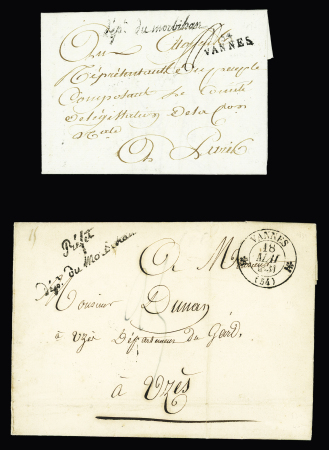 dép.t du morbihan
54
VANNES
Au Citoyen
Représentant du peuple
Composant Le Comité
de législation de la Con
A Paris
Préfet
Dép.t du Morbihan
VANNES
18
MAI
(54)
A M
Monsieur Dunan
à Uzès Département du Gard.
à Uzès